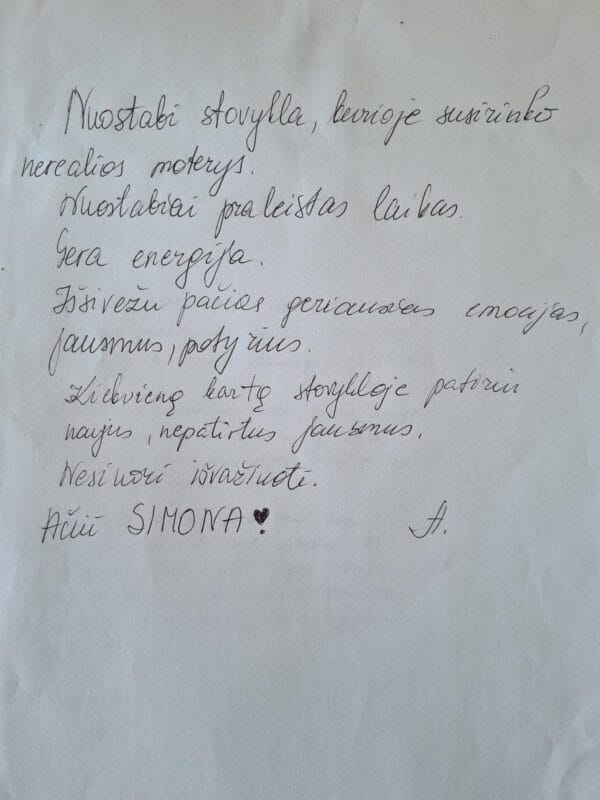 Nuostabi stovykla, kurioje susirinko
nerealios moterys.
Nuostabiai praleistas laikas.
Gera energija.
Išsivežu pačias geriausias emocijas,
jausmus, potyrius.
Kiekvieną kartą stovykloje patiriu
naujus, nepatirtus jausmus.
Nesinori išvažiuoti.
Ačiū SIMONA ♥ A.